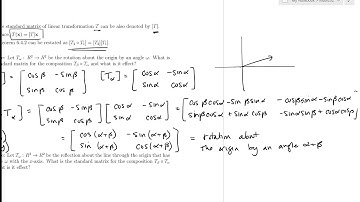 standard matrix of linear transformation T can also be denoted by [T].
T(x) = [T]x
6.4.2 can be restated as [T₂∘T₁] = [T₂][T₁]
Let Tα : R² → R² be the rotation about the origin by an angle α. What is
standard matrix for the composition Tβ∘Tα and what is it effect?
= [ cosβ -sinβ
sinβ cosβ ] [Tα] = [ cosα -sinα
sinα cosα ]
Tα] = [ cosβ -sinβ
sinβ cosβ ] [ cosα -sinα
sinα cosα ] = [ cosβcosα - sinβsinα -cosβsinα - sinβcosα
sinβcosα + cosβsinα -sinαsinβ + cosβcosα ]
= [ cos(α+β) -sin(α+β)
sin(α+β) cos(α+β) ] = rotation about
the origin by an angle α+β
Let Tα : R² → R² be the reflection about the line through the origin that has
α with the x-axis. What is the standard matrix for the composition Tβ∘Tα
what is it effect?